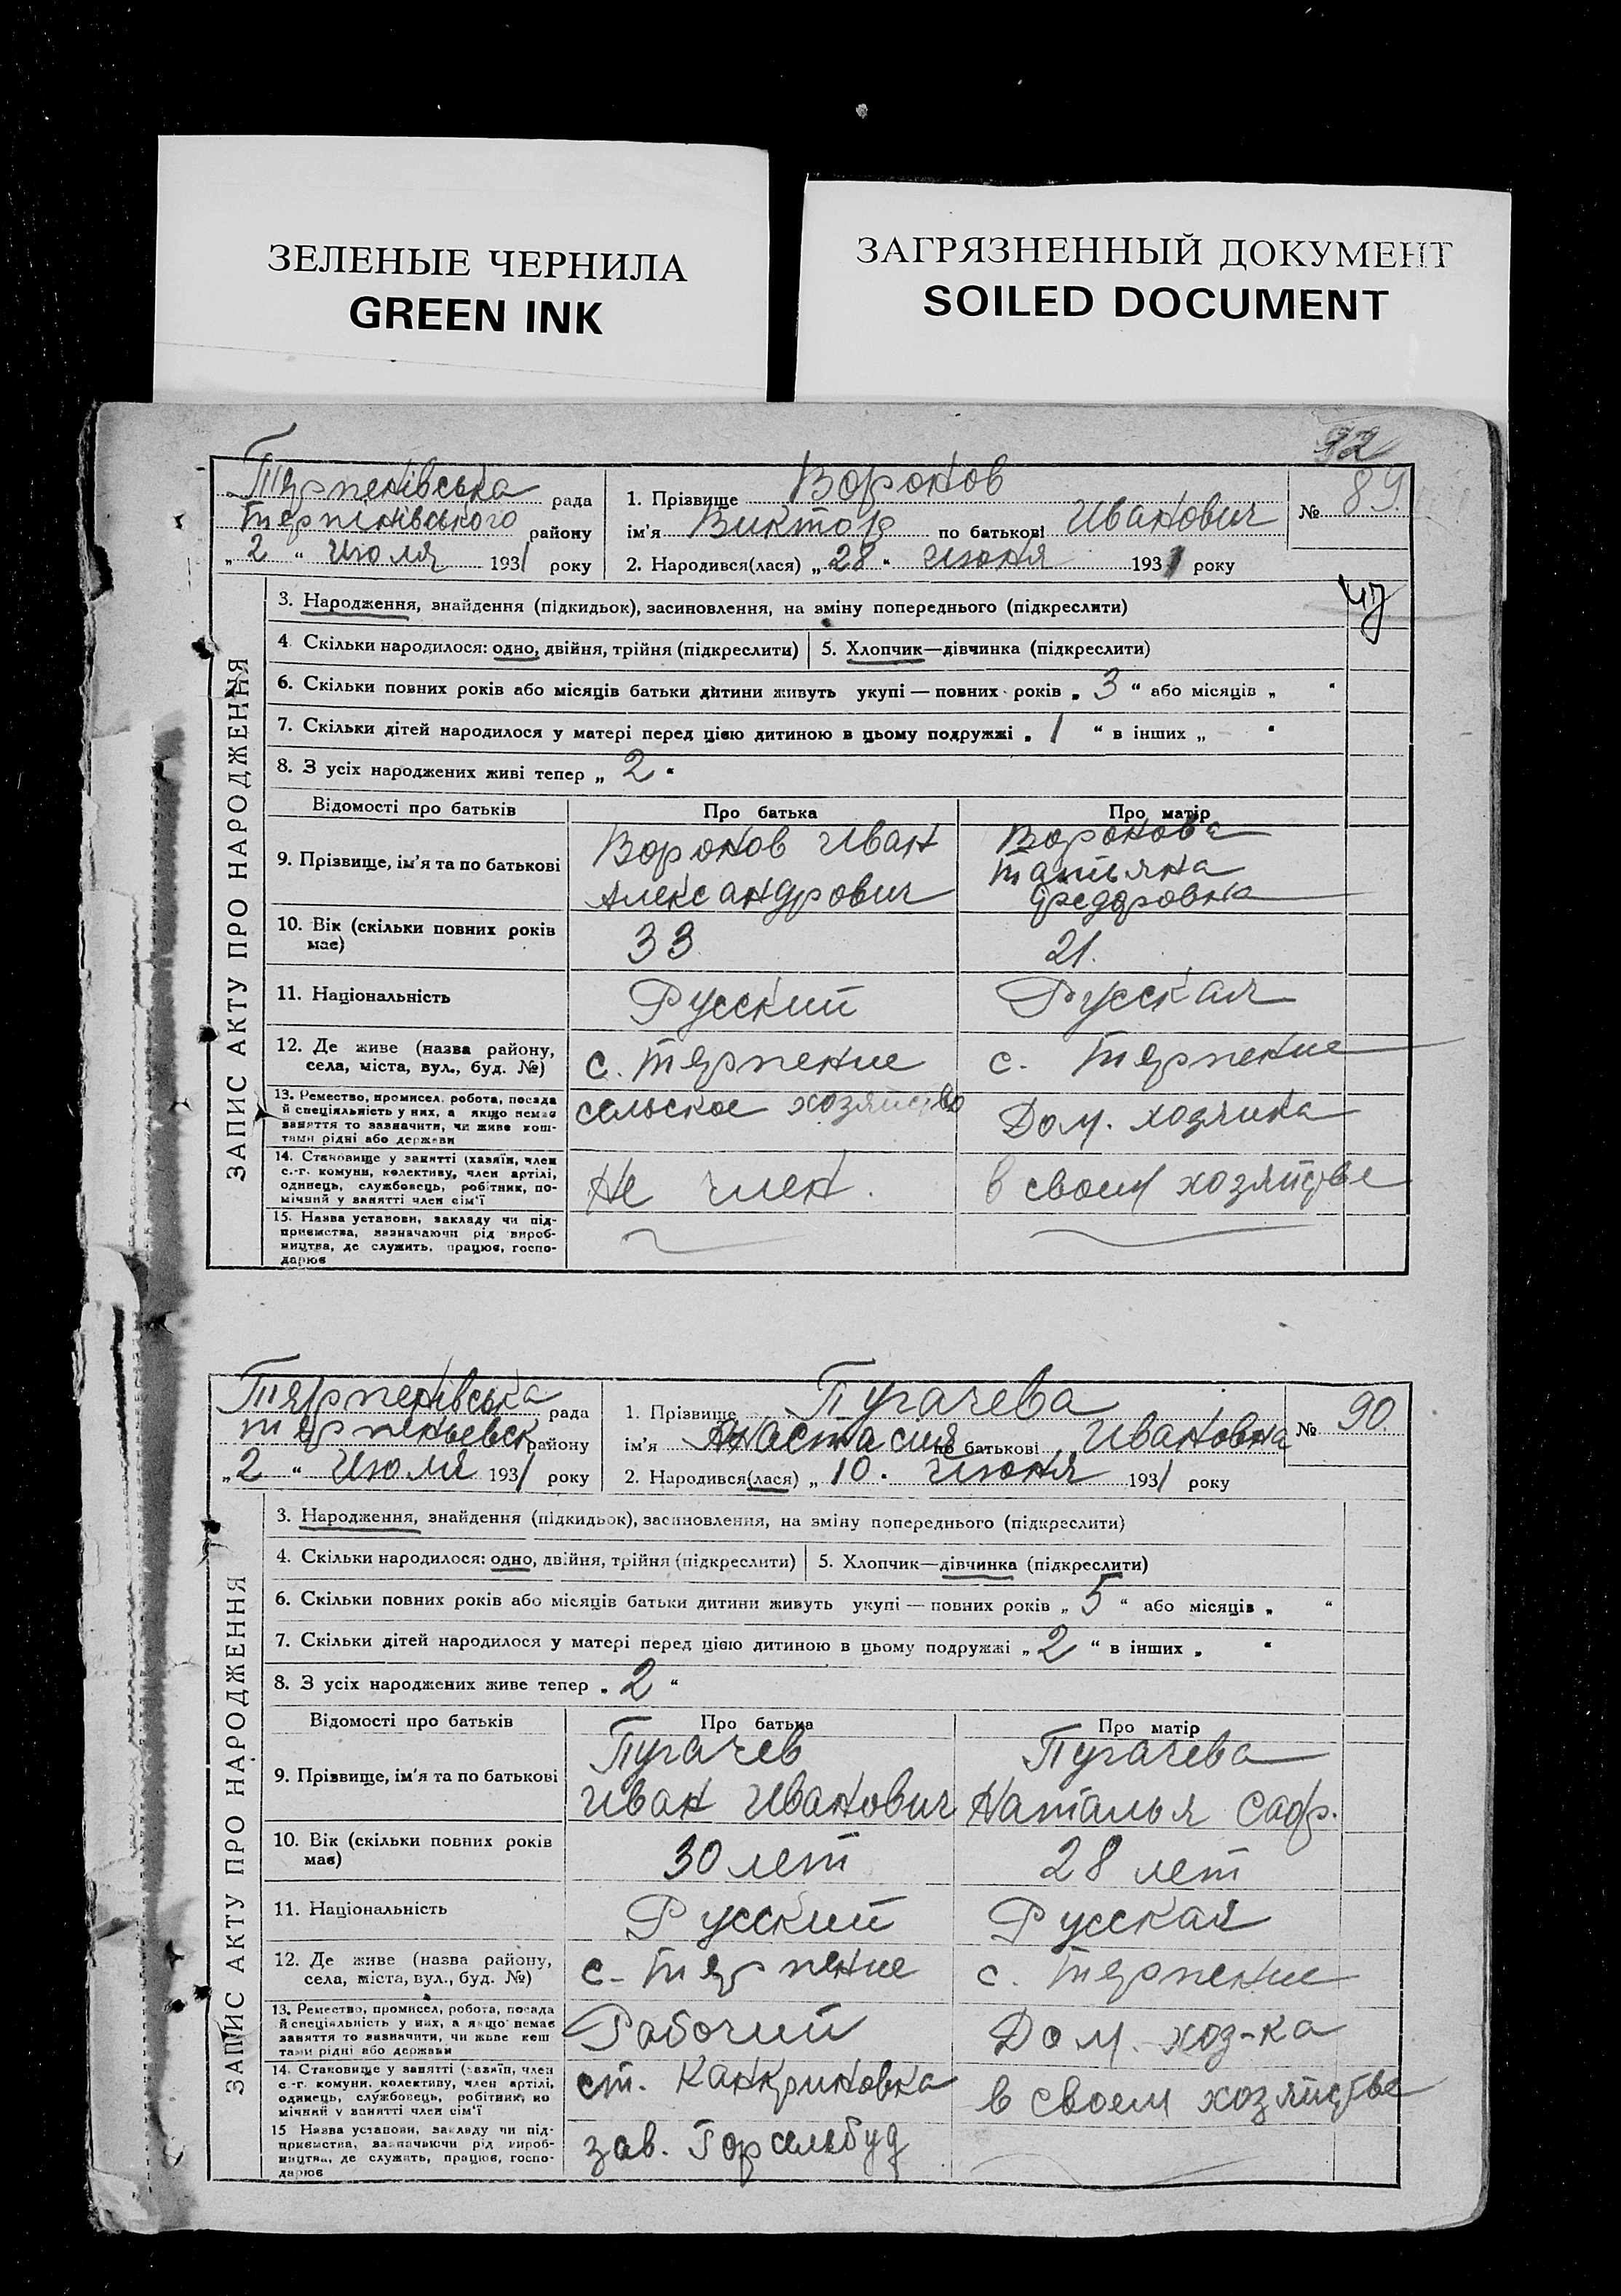 ЗЕЛЕНЫЕ ЧЕРНИЛА
GREEN INK
ЗАГРЯЗНЕННЫЙ ДОКУМЕНТ
SOILED DOCUMENT
92
ЗАПИС АКТУ ПРО НАРОДЖЕННЯ
Терпенівська рада
Терпінівського району
„2“ Июля 1931 року
1. Прізвище Воронов
ім'я Виктор по батькові Иванович
2. Народився(лася) „28“ Июня 1931 року
№ 89.
3. Народження, знайдення (підкидьок), засиновлення, на зміну попереднього (підкреслити)
4. Скільки народилося: одно, двійня, трійня (підкреслити) 5. Хлопчик—дівчинка (підкреслити)
6. Скільки повних років або місяців батьки дитини живуть укупі — повних років „3“ або місяців „ “
7. Скільки дітей народилося у матері перед цією дитиною в цьому подружжі „1“ в інших „ “
8. З усіх народжених живі тепер „2“
Відомості про батьків Про батька Про матір
9. Прізвище, ім'я та по батькові
Воронов Иван
Александрович
Воронова
Татьяна
Федоровна
10. Вік (скільки повних років
має)
33
21.
11. Національність Русский Русская
12. Де живе (назва району,
села, міста, вул., буд. №)
с. Терпение
с. Терпение
13. Ремество, промисел, робота, посада
й спеціяльність у них, а якщо немає
заняття то зазначити, чи живе кош-
тами рідні або держави
сельское хозяйство
Дом. хозяйка
14. Становище у занятті (хазяїн, член
с.-г. комуни, колективу, член артілі,
одинець, службовець, робітник, по-
мічний у занятті член сім'ї
Не член.
в своем хозяйстве
15. Назва установи, закладу чи під-
приємства, зазначаючи рід вироб-
ництва, де служить, працює, госпо-
дарює
ЗАПИС АКТУ ПРО НАРОДЖЕННЯ
Терпенівська рада
Терпеньевск району
„2“ Июля 1931 року
1. Прізвище Пугачева
ім'я Анастасия по батькові Ивановна
2. Народився(лася) „10. Июня 1931 року
№ 90.
3. Народження, знайдення (підкидьок), засиновлення, на зміну попереднього (підкреслити)
4. Скільки народилося: одно, двійня, трійня (підкреслити) 5. Хлопчик—дівчинка (підкреслити)
6. Скільки повних років або місяців батьки дитини живуть укупі — повних років „5“ або місяців „ “
7. Скільки дітей народилося у матері перед цією дитиною в цьому подружжі „2“ в інших „ “
8. З усіх народжених живе тепер „2“
Відомості про батьків Про батька Про матір
9. Прізвище, ім'я та по батькові
Пугачев
Иван Иванович
Пугачева
Наталья Саф.
10. Вік (скільки повних років
має)
30 лет
28 лет
11. Національність Русский Русская
12. Де живе (назва району,
села, міста, вул., буд. №)
с. Терпение
с. Терпение
13. Ремество, промисел, робота, посада
й спеціяльність у них, а якщо немає
заняття то зазначити, чи живе кош
тами рідні або держави
Рабочий
Дом. хоз-ка
14. Становище у занятті (хазяїн, член
с.-г. комуни, колективу, член артілі,
одинець, службовець, робітник, по
мічний у занятті член сім'ї
ст. Канкриновка
в своем хозяйстве
15 Назва установи, закладу чи під-
приємства, зазначаючи рід вироб-
ництва, де служить, працює, госпо-
дарює
зав. Горсельбуд